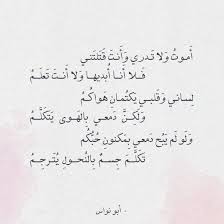 أَموتُ وَلا تَدري وَأَنتَ قَتَلتَني
فَـلا أَنـا أُبديهـا وَلا أَنـتَ تَعلَـمُ
لِساني وَقَلبـي يَكتُمانِ هَواكُـمُ
وَلَكِـن دَمعـي بِالهَـوى يَتَكَلَّـمُ
وَلَو لَم يَبُح دَمعي بِمَكنونِ حُبُّكُم
تَكَلَّـمَ جِسـمٌ بِالنُحـولِ يُتَرجِـمُ
- أبو نواس